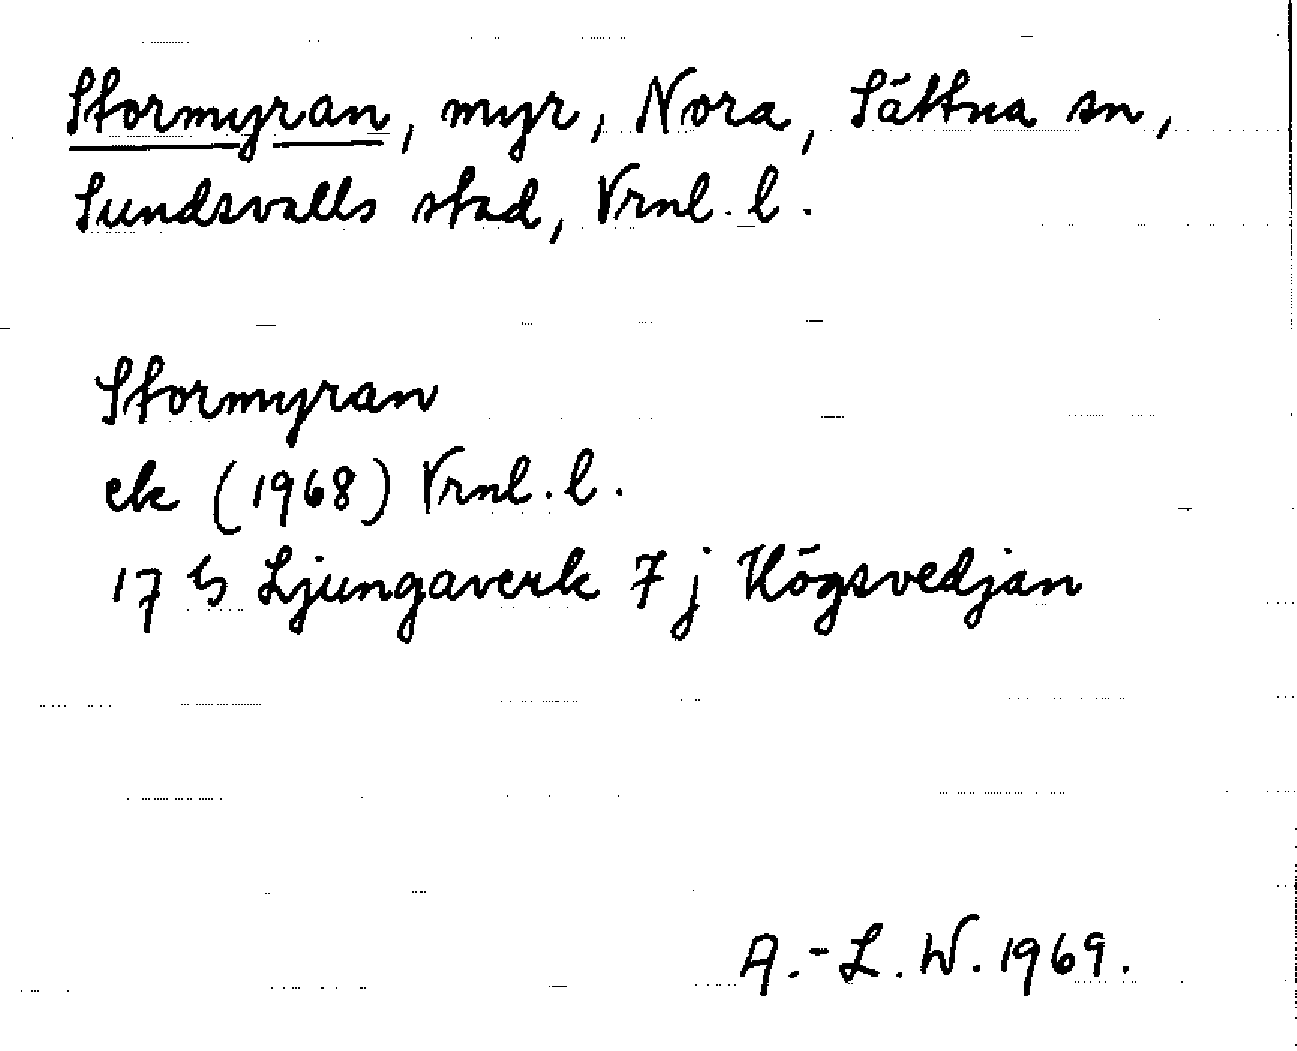 Stormyran, myr, Nora, Sättna sn,
Sundsvalls stad, Vrnl. l.
Stormyran
ek (1968) Vrnl. l.
17 G Ljungaverk 7 j Högsvedjan
A.-L. W. 1969.